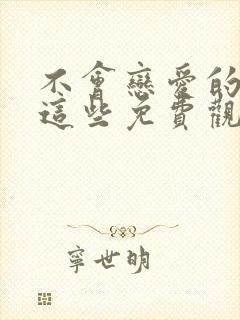 不會戀愛的
這些免費觀
寧世明